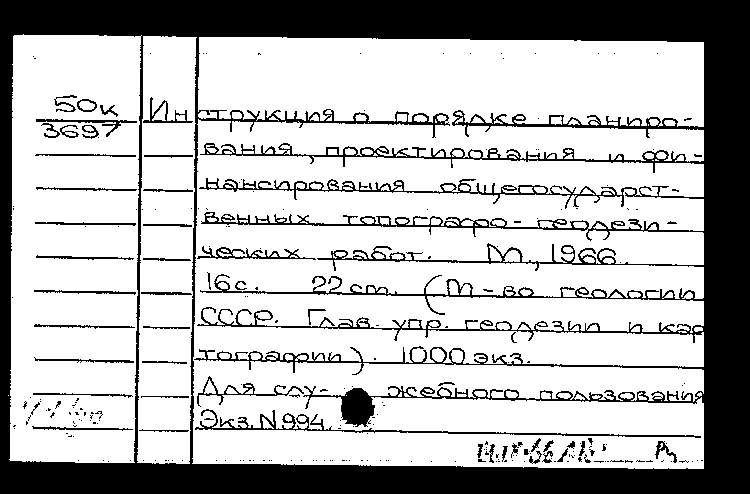 50к Инструкция о порядке планиро-
3697
вания, проектирования и фи-
нансирования общегосударст-
венных топографо-геодези-
ческих работ. М., 1966.
16с. 22 cm. (М-во геологии
СССР. Глав. упр. геодезии и кар
тографии). 1000 экз.
Для слу- жебного пользования
Экз. N 994.